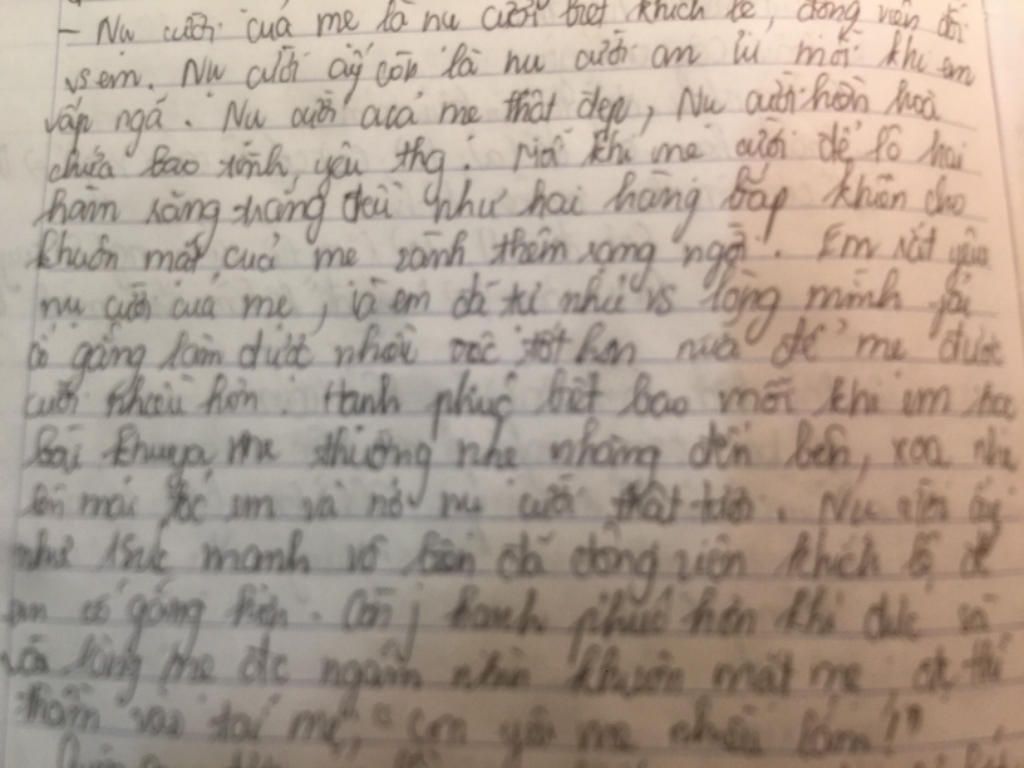 - Nụ cười của mẹ là nụ cười biết khích lệ, động viên đối
vs em. Nụ cười ấy còn là nụ cười an ủi mỗi khi em
vấp ngã. Nụ cười của mẹ thật đẹp, Nụ cười hiền hoà
chứa bao tình yêu thg. Mỗi khi mẹ cười để lộ hai
hàm răng trắng đều như hai hàng bắp khiến cho
khuôn mặt của mẹ rạnh thêm rạng ngời. Em rất yêu
nụ cười của mẹ, và em đã tự nhủ vs lòng mình phải
cố gắng làm được nhiều việc tốt hơn nữa để mẹ được
cười nhiều hơn. Hạnh phúc biết bao mỗi khi em học
bài khuya mẹ thường nhẹ nhàng đến bên, xoa nhẹ
lên mái tóc em và nở nụ cười thật tươi. Nụ cười ấy
như sức mạnh vô biên đã động viên khích lệ để
em cố gắng hơn. Còn j hạnh phúc hơn khi được sà
vào lòng mẹ đc ngắm nhìn khuôn mặt mẹ đc thì
thầm vào tai mẹ "con yêu mẹ nhiều lắm!"